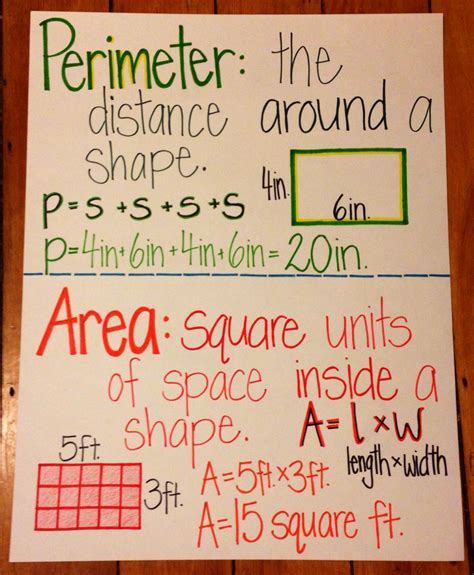 Perimeter: the
distance around a
shape.
4in.
6in.
P=s+s+s+s
P=4in+6in+4in+6in=20in.
Area: square units
of space inside a
shape.
A=l×w
length×width
5ft.
3ft.
A=5ft.×3ft.
A=15 square ft.